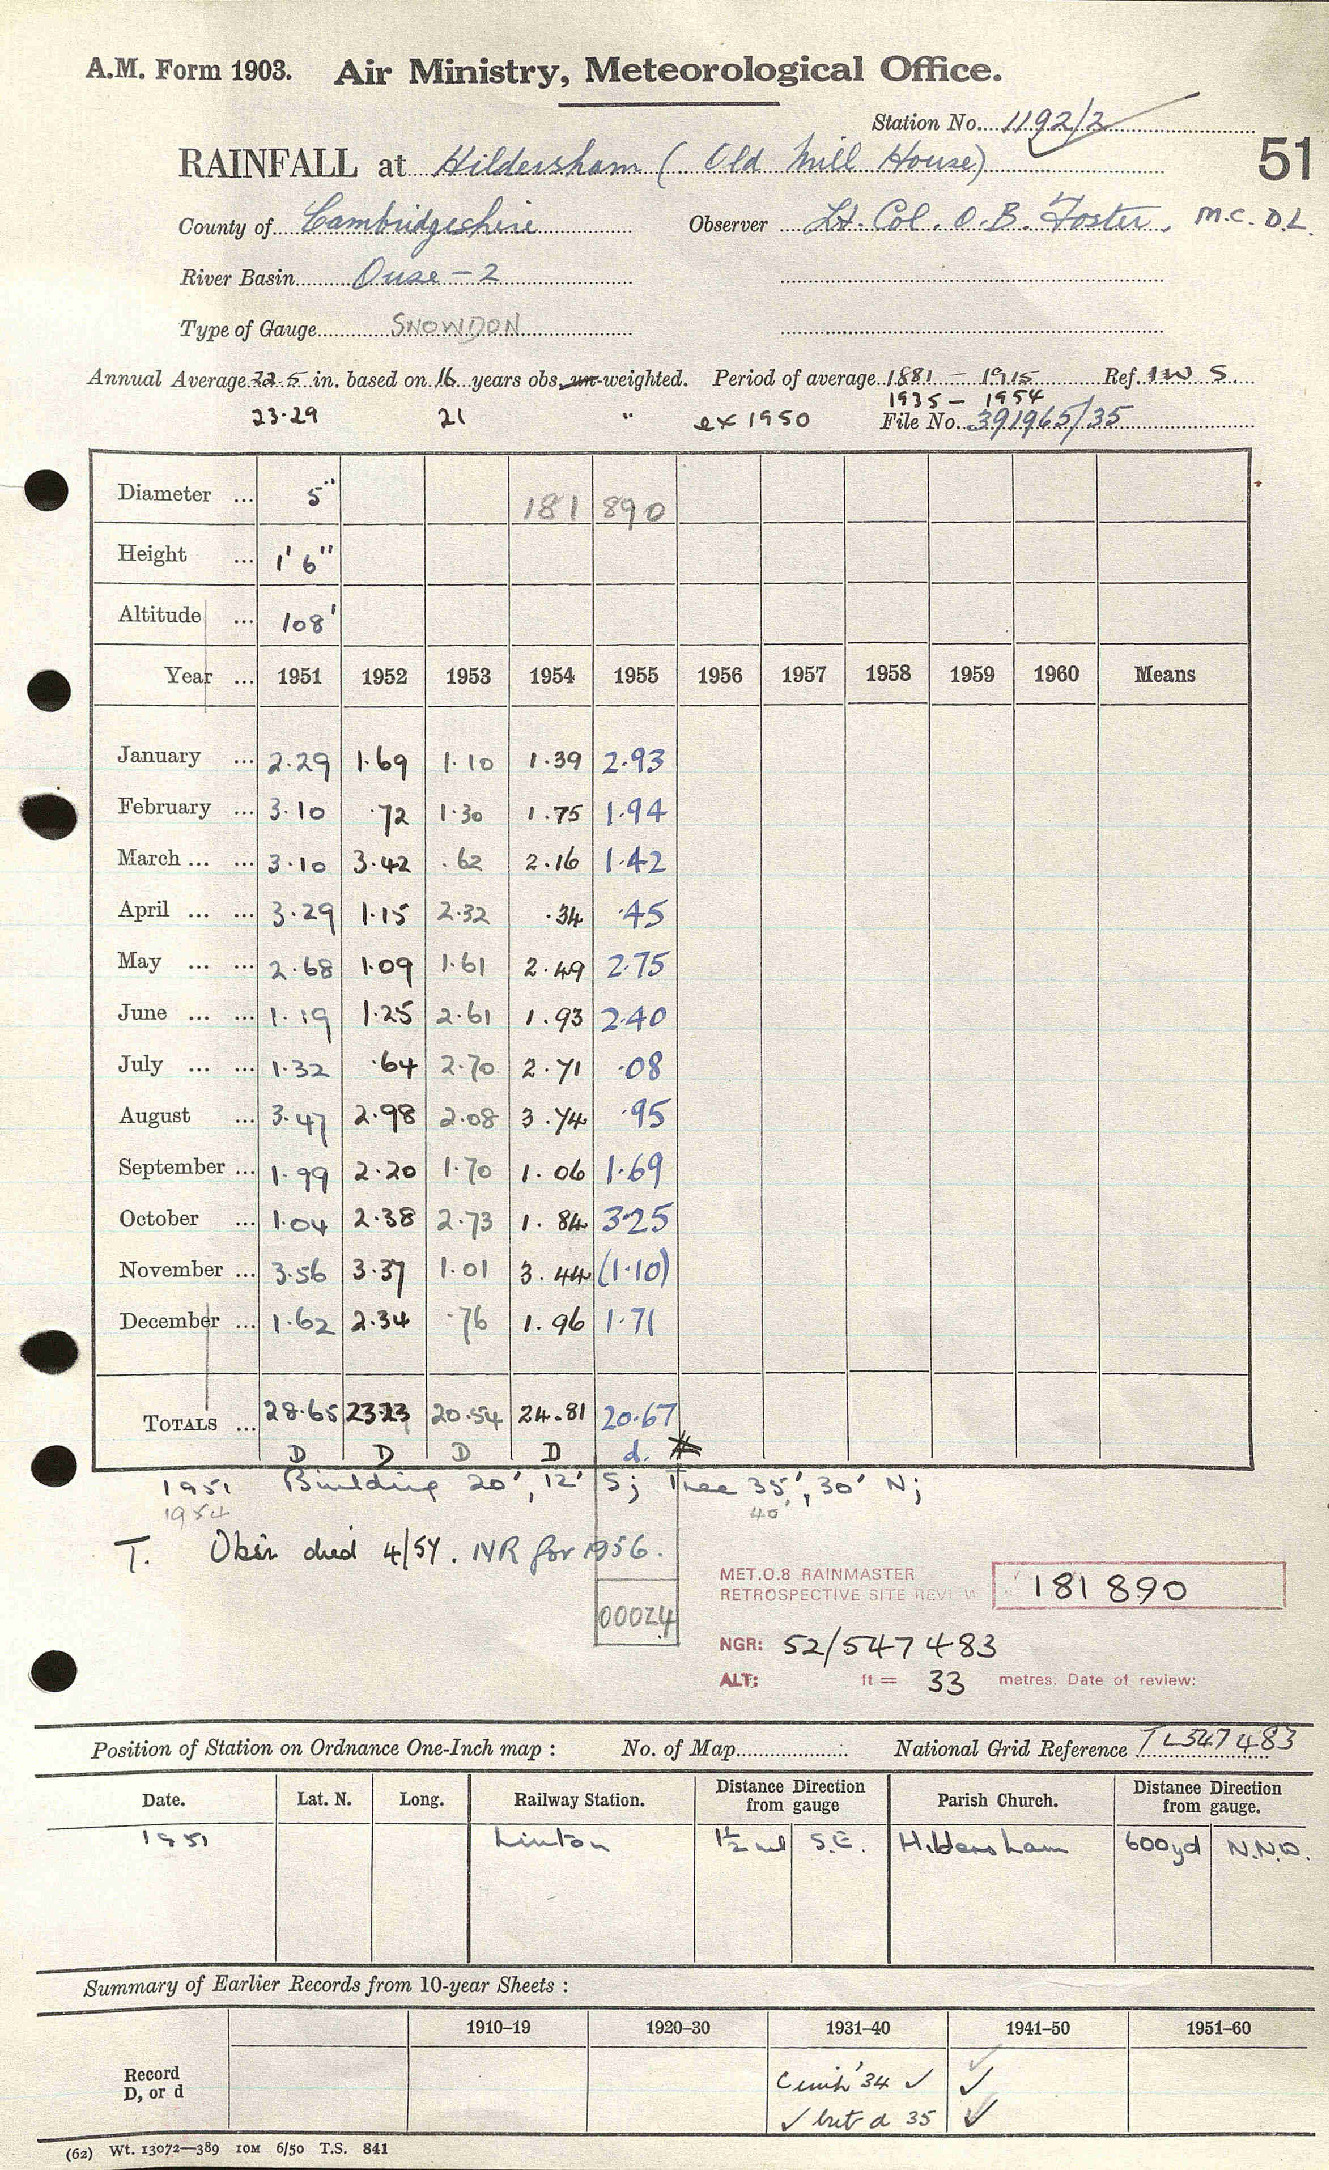 A.M. Form 1903. Air Ministry, Meteorological Office.
Station No. 1192/2
51
RAINFALL at Hildersham (Old Mill House)
County of Cambridgeshire Observer Lt. Col. O.B. Foster, M.C. D.L.
River Basin Ouse - 2
Type of Gauge SNOWDON
Annual Average 22.5 in. based on 16 years obs. un-weighted. Period of average 1881 - 1915 Ref. IWS
1935 - 1954
23.29 21 " ex 1950 File No. 391965/35
Diameter ... 5" 181 890
Height ... 1' 6"
Altitude ... 108'
Year ... 1951 1952 1953 1954 1955 1956 1957 1958 1959 1960 Means
January ... 2.29 1.69 1.10 1.39 2.93
February ... 3.10 .72 1.30 1.75 1.94
March ... ... 3.10 3.42 .62 2.16 1.42
April ... ... 3.29 1.15 2.32 .34 .45
May ... ... 2.68 1.09 1.61 2.49 2.75
June ... ... 1.19 1.25 2.61 1.93 2.40
July ... ... 1.32 .64 2.70 2.71 .08
August ... 3.47 2.98 2.08 3.74 .95
September ... 1.99 2.20 1.70 1.06 1.69
October ... 1.04 2.38 2.73 1.84 3.25
November ... 3.56 3.37 1.01 3.44 (1.10)
December ... 1.62 2.34 .76 1.96 1.71
TOTALS ... 28.65 23.23 20.54 24.81 20.67
D D D D d.
1951 Building 20', 12' S; Tree 35', 30' N;
1954 40'
T. Obsr. died 4/54. NR for 1956.
MET.O.8 RAINMASTER
RETROSPECTIVE SITE REVIEW 181 890
00024
NGR: 52/547483
ALT: ft = 33 metres. Date of review:
Position of Station on Ordnance One-Inch map : No. of Map National Grid Reference TL547483
Date. Lat. N. Long. Railway Station. Distance Direction from gauge Parish Church. Distance Direction from gauge.
1951 Linton 1½ ml S.E. Hildersham 600yd N.N.W.
Summary of Earlier Records from 10-year Sheets :
1910–19 1920–30 1931–40 1941–50 1951–60
Record
D, or d
'34 ✓ ✓
✓ but d 35 ✓
(62) Wt. 13072—389 10M 6/50 T.S. 841